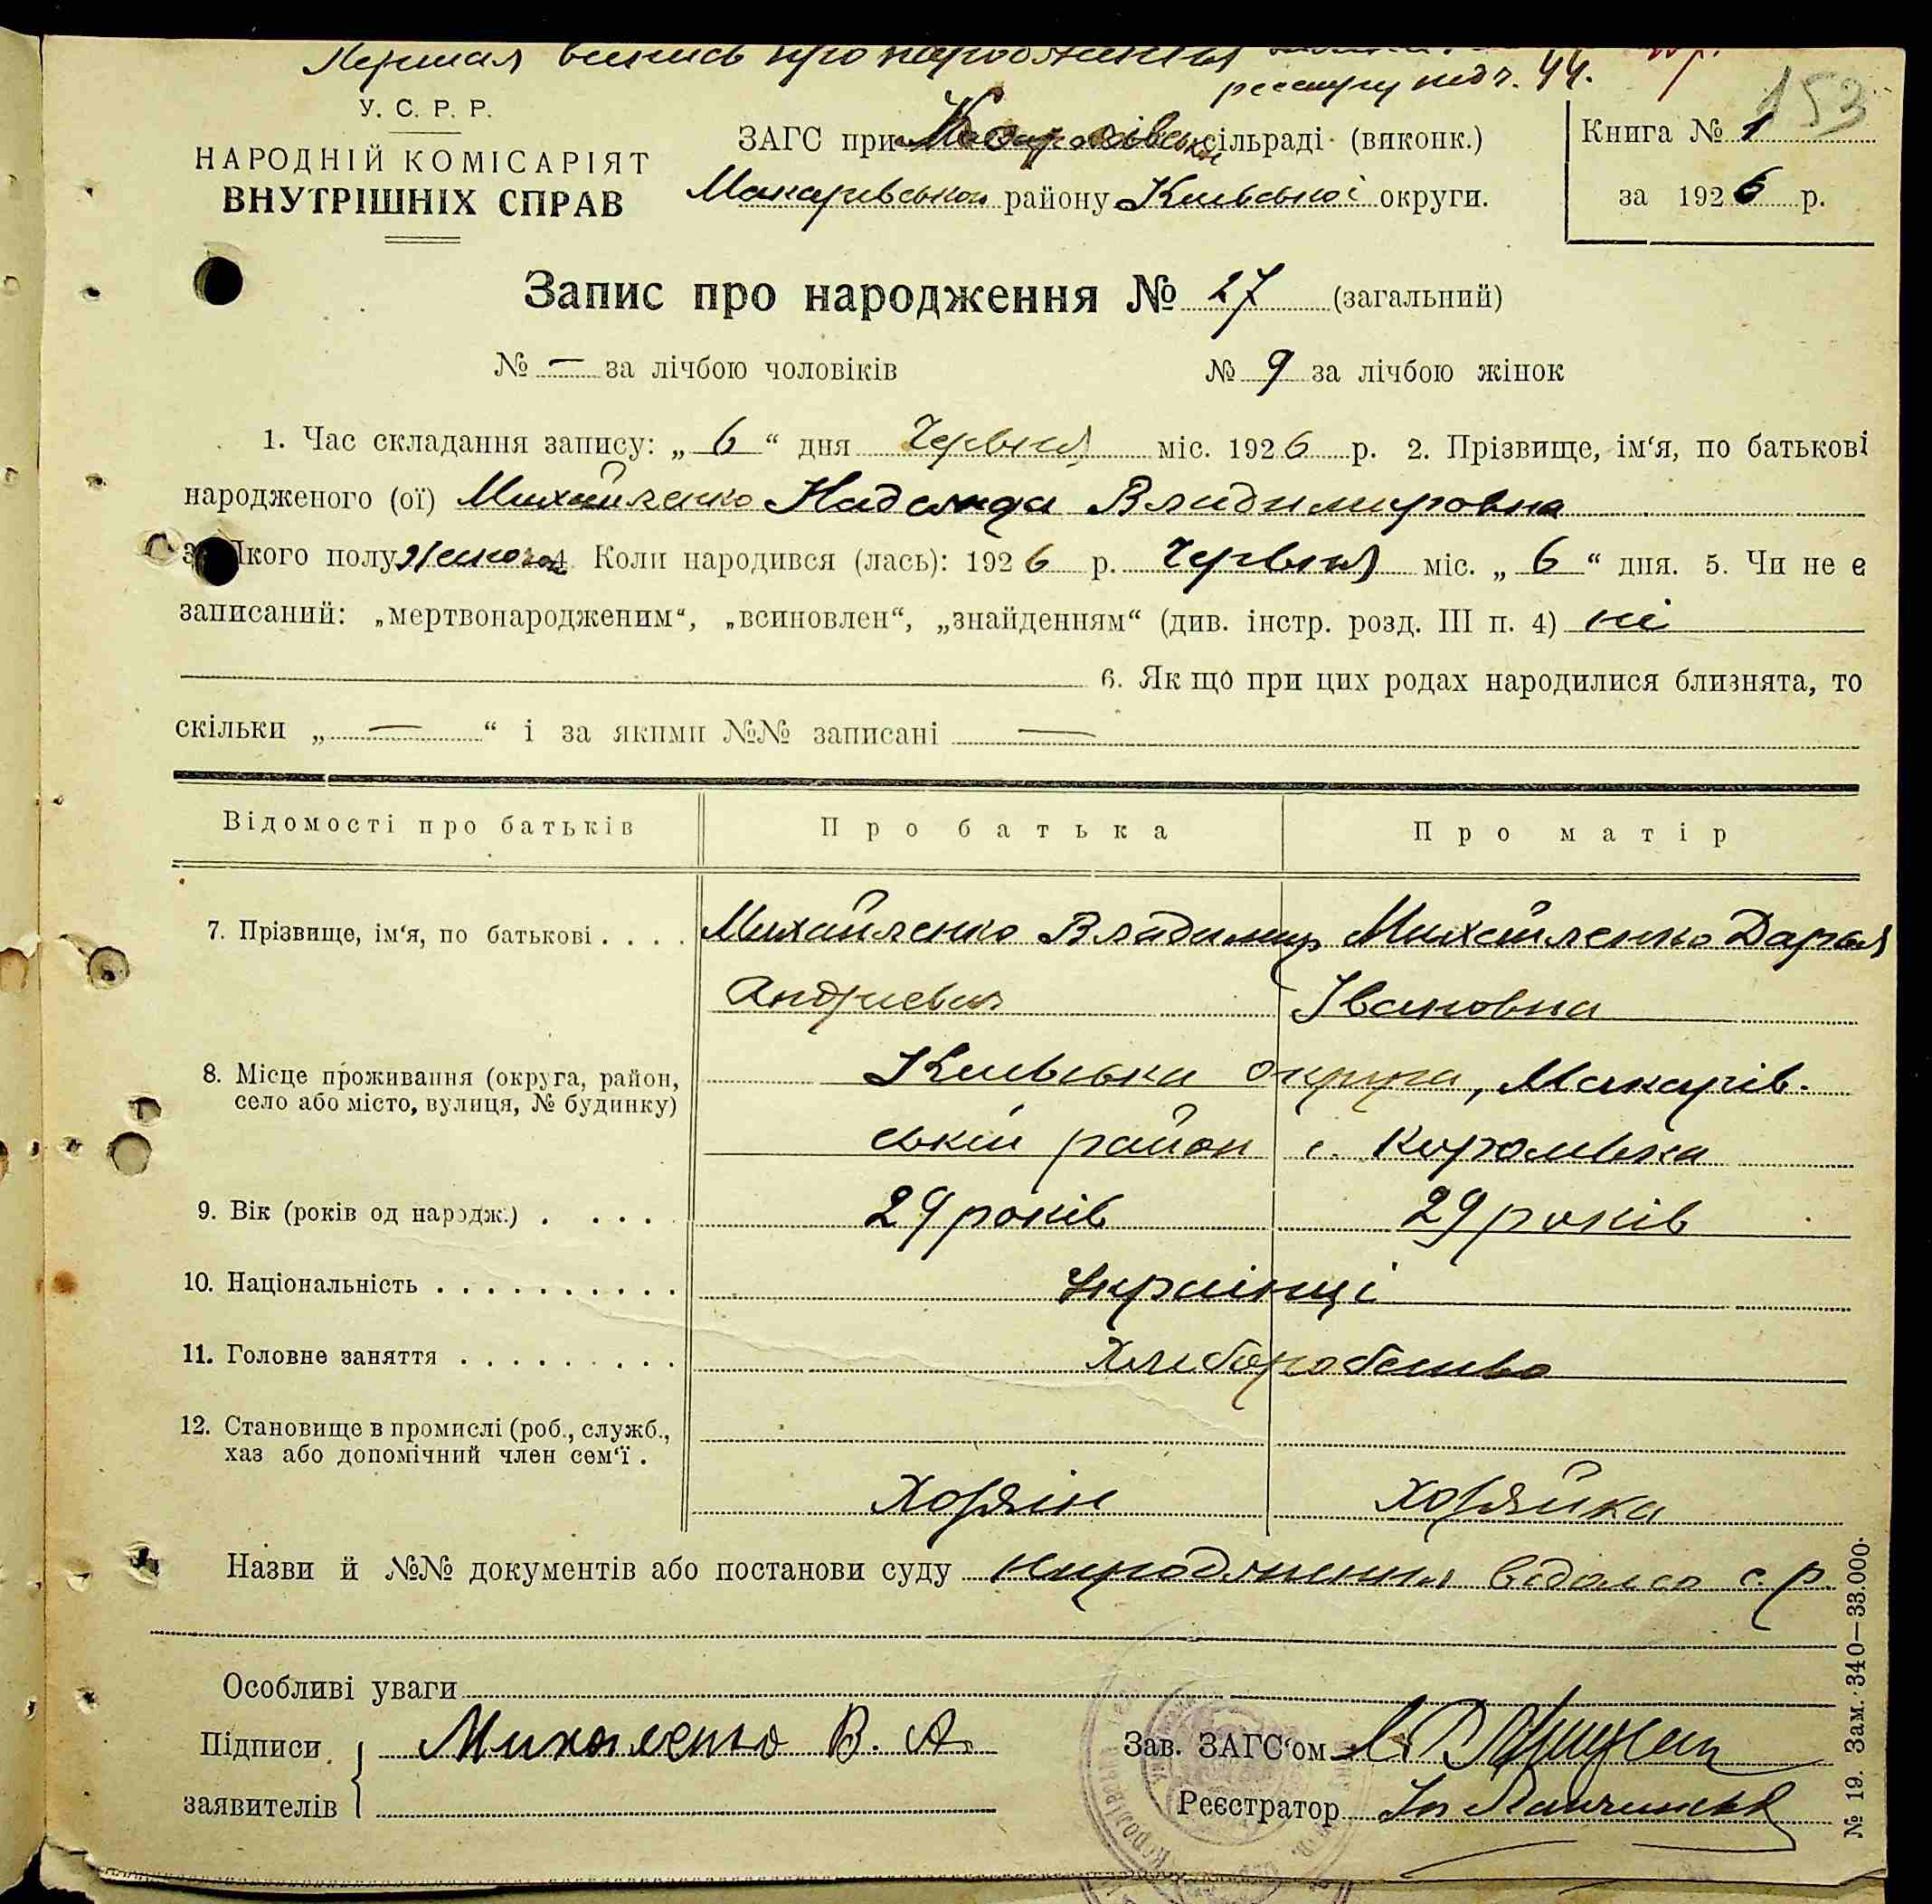 вепись про народження
реестру під ч. 44.
У. С. Р. Р.
НАРОДНІЙ КОМІСАРІЯТ
ВНУТРІШНІХ СПРАВ
ЗАГС при сільраді (виконк.)
Макарівського району Київської округи.
Книга № 1
153
за 1926 р.
Запис про народження № 27 (загальний)
№ — за лічбою чоловіків № 9 за лічбою жінок
1. Час складання запису: „ 6 “ дня Червня міс. 1926 р. 2. Прізвище, ім‘я, по батькові
народженого (ої) Михайленко Надежда Владимировна
3. Якого полу 4. Коли народився (лась): 1926 р. Червня міс. „ 6 “ дня. 5. Чи не є
записаний: „мертвонародженим“, „всиновлен“, „знайденням“ (див. інстр. розд. III п. 4) ні
6. Як що при цих родах народилися близнята, то
скільки „ — “ і за якими №№ записані —
Відомості про батьків Про батька Про матір
7. Прізвище, ім‘я, по батькові . . . . Михайленко Владимир Михайленко Дарья
Андриевич Івановна
8. Місце проживання (округа, район, Киівська округа, Макарів-
село або місто, вулиця, № будинку)
ський район с. Королівка
9. Вік (років од народж.) . . . . . 29 років 29 років
10. Національність . . . . . . . . . . Українці
11. Головне заняття . . . . . . . . . Хліборобство
12. Становище в промислі (роб., служб.,
хаз або допомічний член сем‘ї .
Хозяін хозяйка
Назви й №№ документів або постанови суду народження відомо с. р.
Особливі уваги
Підписи Михаленко В. А. Зав. ЗАГС‘ом
заявителів Реєстратор
№ 19. Зам. 340—33.000.